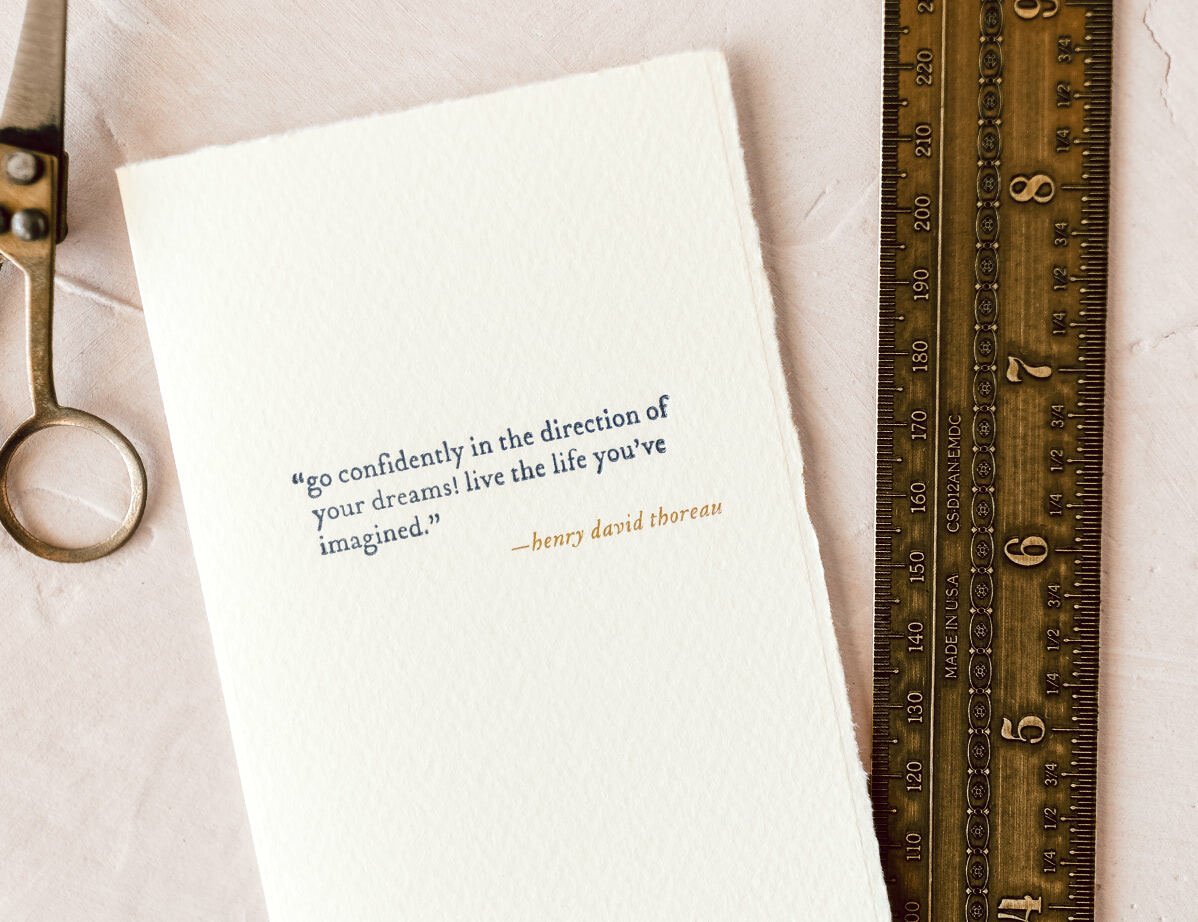 “go confidently in the direction of
your dreams! live the life you’ve
imagined.”
—henry david thoreau
220
210
200
190
180
170
160
150
140
130
120
110
CS-D12AN-EMDC
MADE IN U.S.A
9
3/4
1/2
1/4
8
3/4
1/2
1/4
7
3/4
1/2
1/4
6
3/4
1/2
1/4
5
3/4
1/2
1/4
4